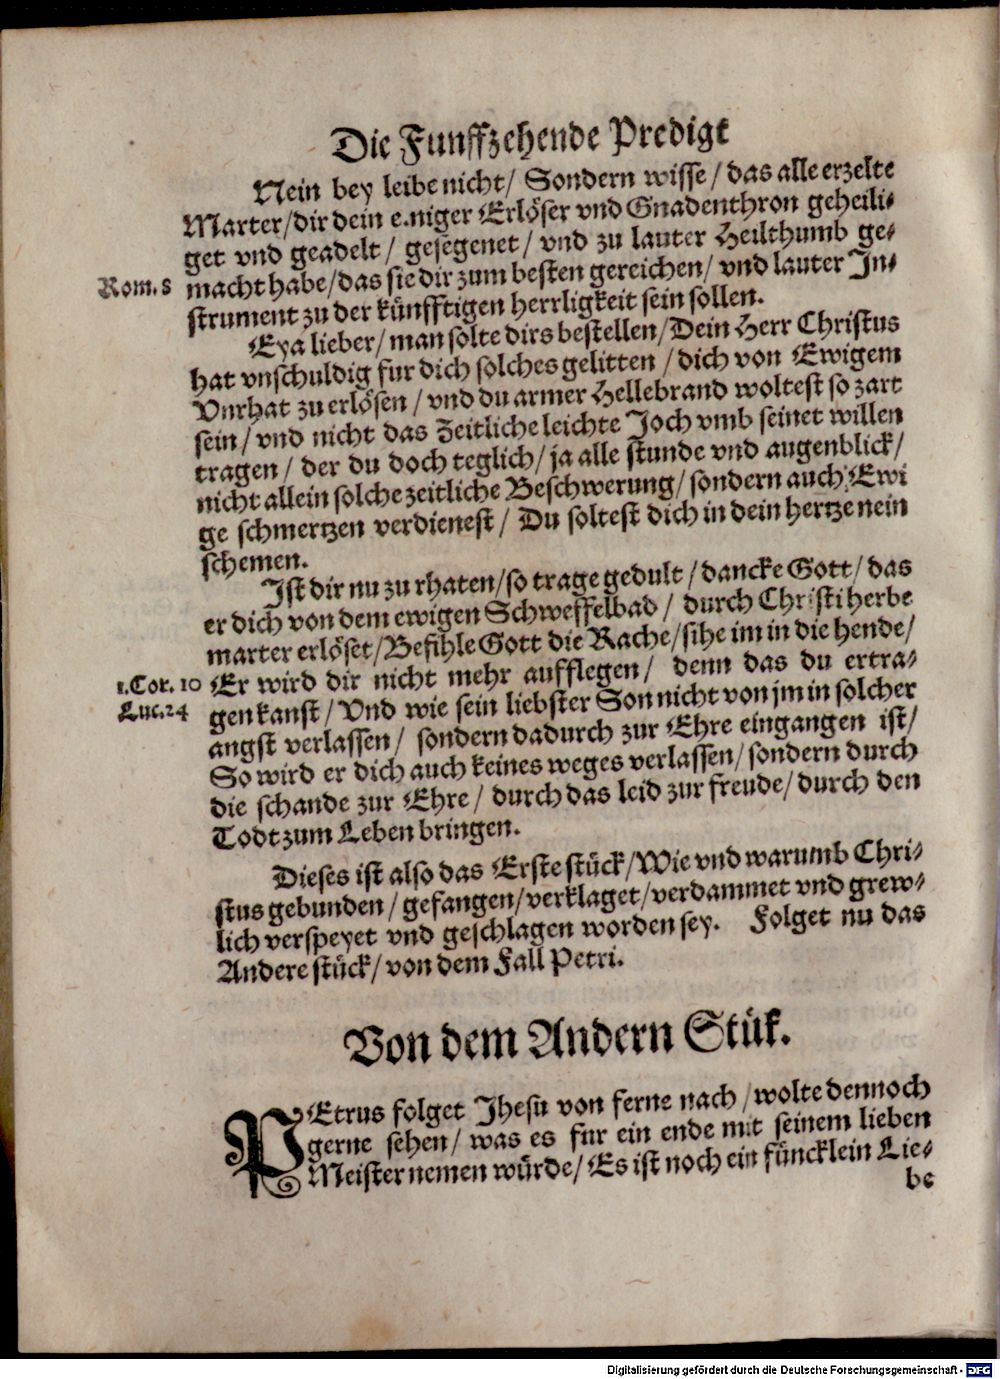 Die Funffzehende Predigt
Nein bey leibe nicht/ Sondern wisse/ das alle erzelte
Marter/ dir dein e.niger Erlöser vnd Gnadenthron geheili-
get vnd geadelt/ gesegenet/ vnd zu lauter Heilthumb ge-
Rom. 8 macht habe/ das sie dir zum besten gereichen/ vnd lauter In-
strument zu der künfftigen herrligkeit sein sollen.
Eya lieber/ man solte dirs bestellen/ Dein Herr Christus
hat vnschuldig fur dich solches gelitten/ dich von Ewigem
Vnrhat zu erlösen/ vnd du armer Hellebrand woltest so zart
sein/ vnd nicht das Zeitliche leichte Joch vmb seinet willen
tragen/ der du doch teglich/ ja alle stunde vnd augenblick/
nicht allein solche zeitliche Beschwerung/ sondern auch Ewi
ge schmertzen verdienest/ Du soltest dich in dein hertze nein
schemen.
Ist dir nu zu rhaten/ so trage gedult/ dancke Gott/ das
er dich von dem ewigen Schweffelbad/ durch Christi herbe
marter erlöset/ Befihle Gott die Rache/ sihe im in die hende/
1. Cor. 10 Er wird dir nicht mehr aufflegen/ denn das du ertra-
Luc. 24 gen kanst/ Vnd wie sein liebster Son nicht von jm in solcher
angst verlassen/ sondern dadurch zur Ehre eingangen ist/
So wird er dich auch keines weges verlassen/ sondern durch
die schande zur Ehre/ durch das leid zur freude/ durch den
Todt zum Leben bringen.
Dieses ist also das Erste stück/ Wie vnd warumb Chri-
stus gebunden/ gefangen/ verklaget/ verdammet vnd grew-
lich verspeyet vnd geschlagen worden sey. Folget nu das
Andere stück/ von dem Fall Petri.
Von dem Andern Stük.
PEtrus folget Jhesu von ferne nach/ wolte dennoch
gerne sehen/ was es fur ein ende mit seinem lieben
Meister nemen würde/ Es ist noch ein füncklein Lie-
be
Digitalisierung gefördert durch die Deutsche Forschungsgemeinschaft - DFG